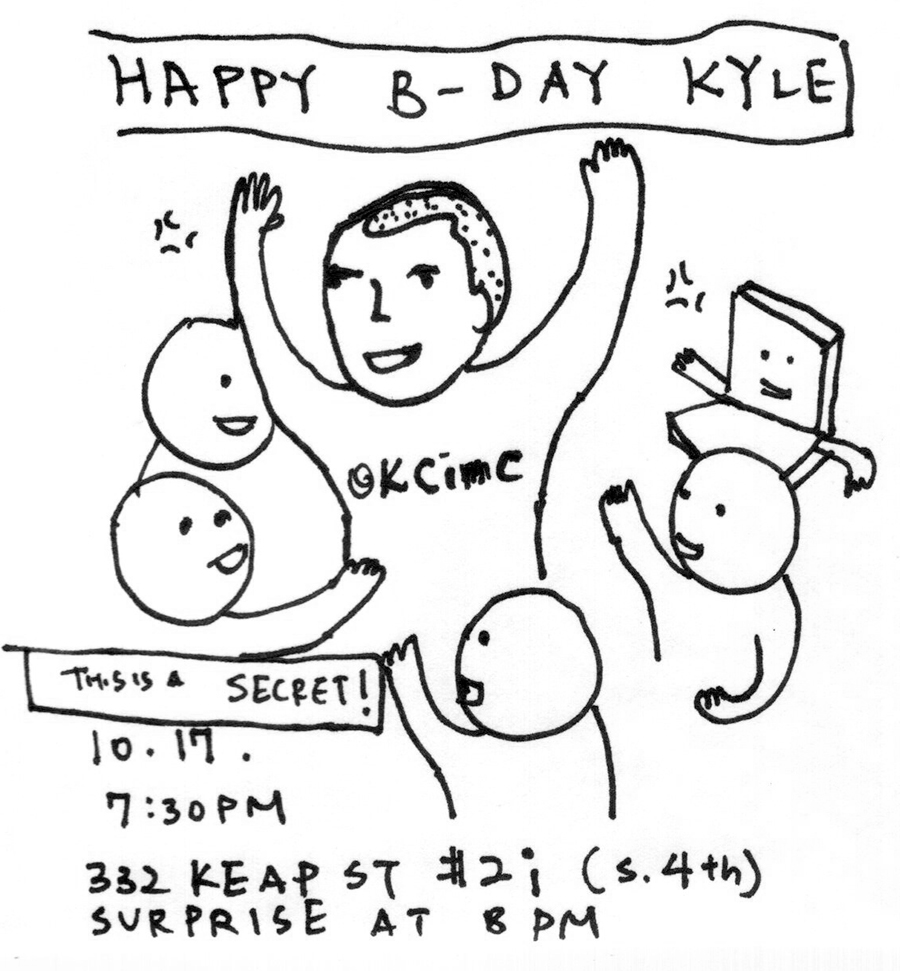 HAPPY B-DAY KYLE
@KCimc
THIS IS A SECRET!
10.17.
7:30PM
332 KEAP ST #2i (S.4th)
SURPRISE AT 8 PM